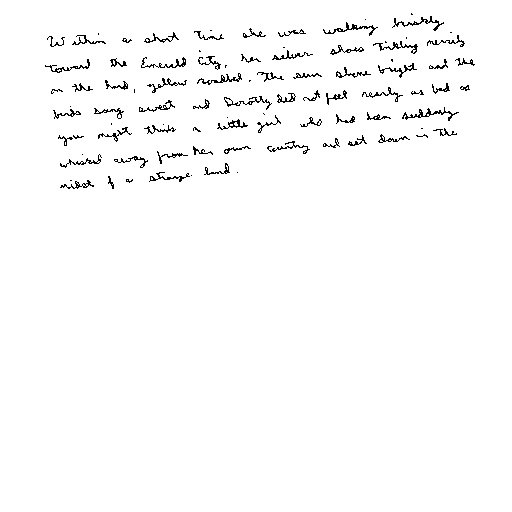 Within a short time she was walking briskly
toward the Emerald City, her silver shoes tinkling merrily
on the hard, yellow roadbed. The sun shone bright and the
birds sang sweet and Dorothy did not feel nearly as bad as
you might think a little girl who had been suddenly
whisked away from her own country and set down in the
midst of a strange land.